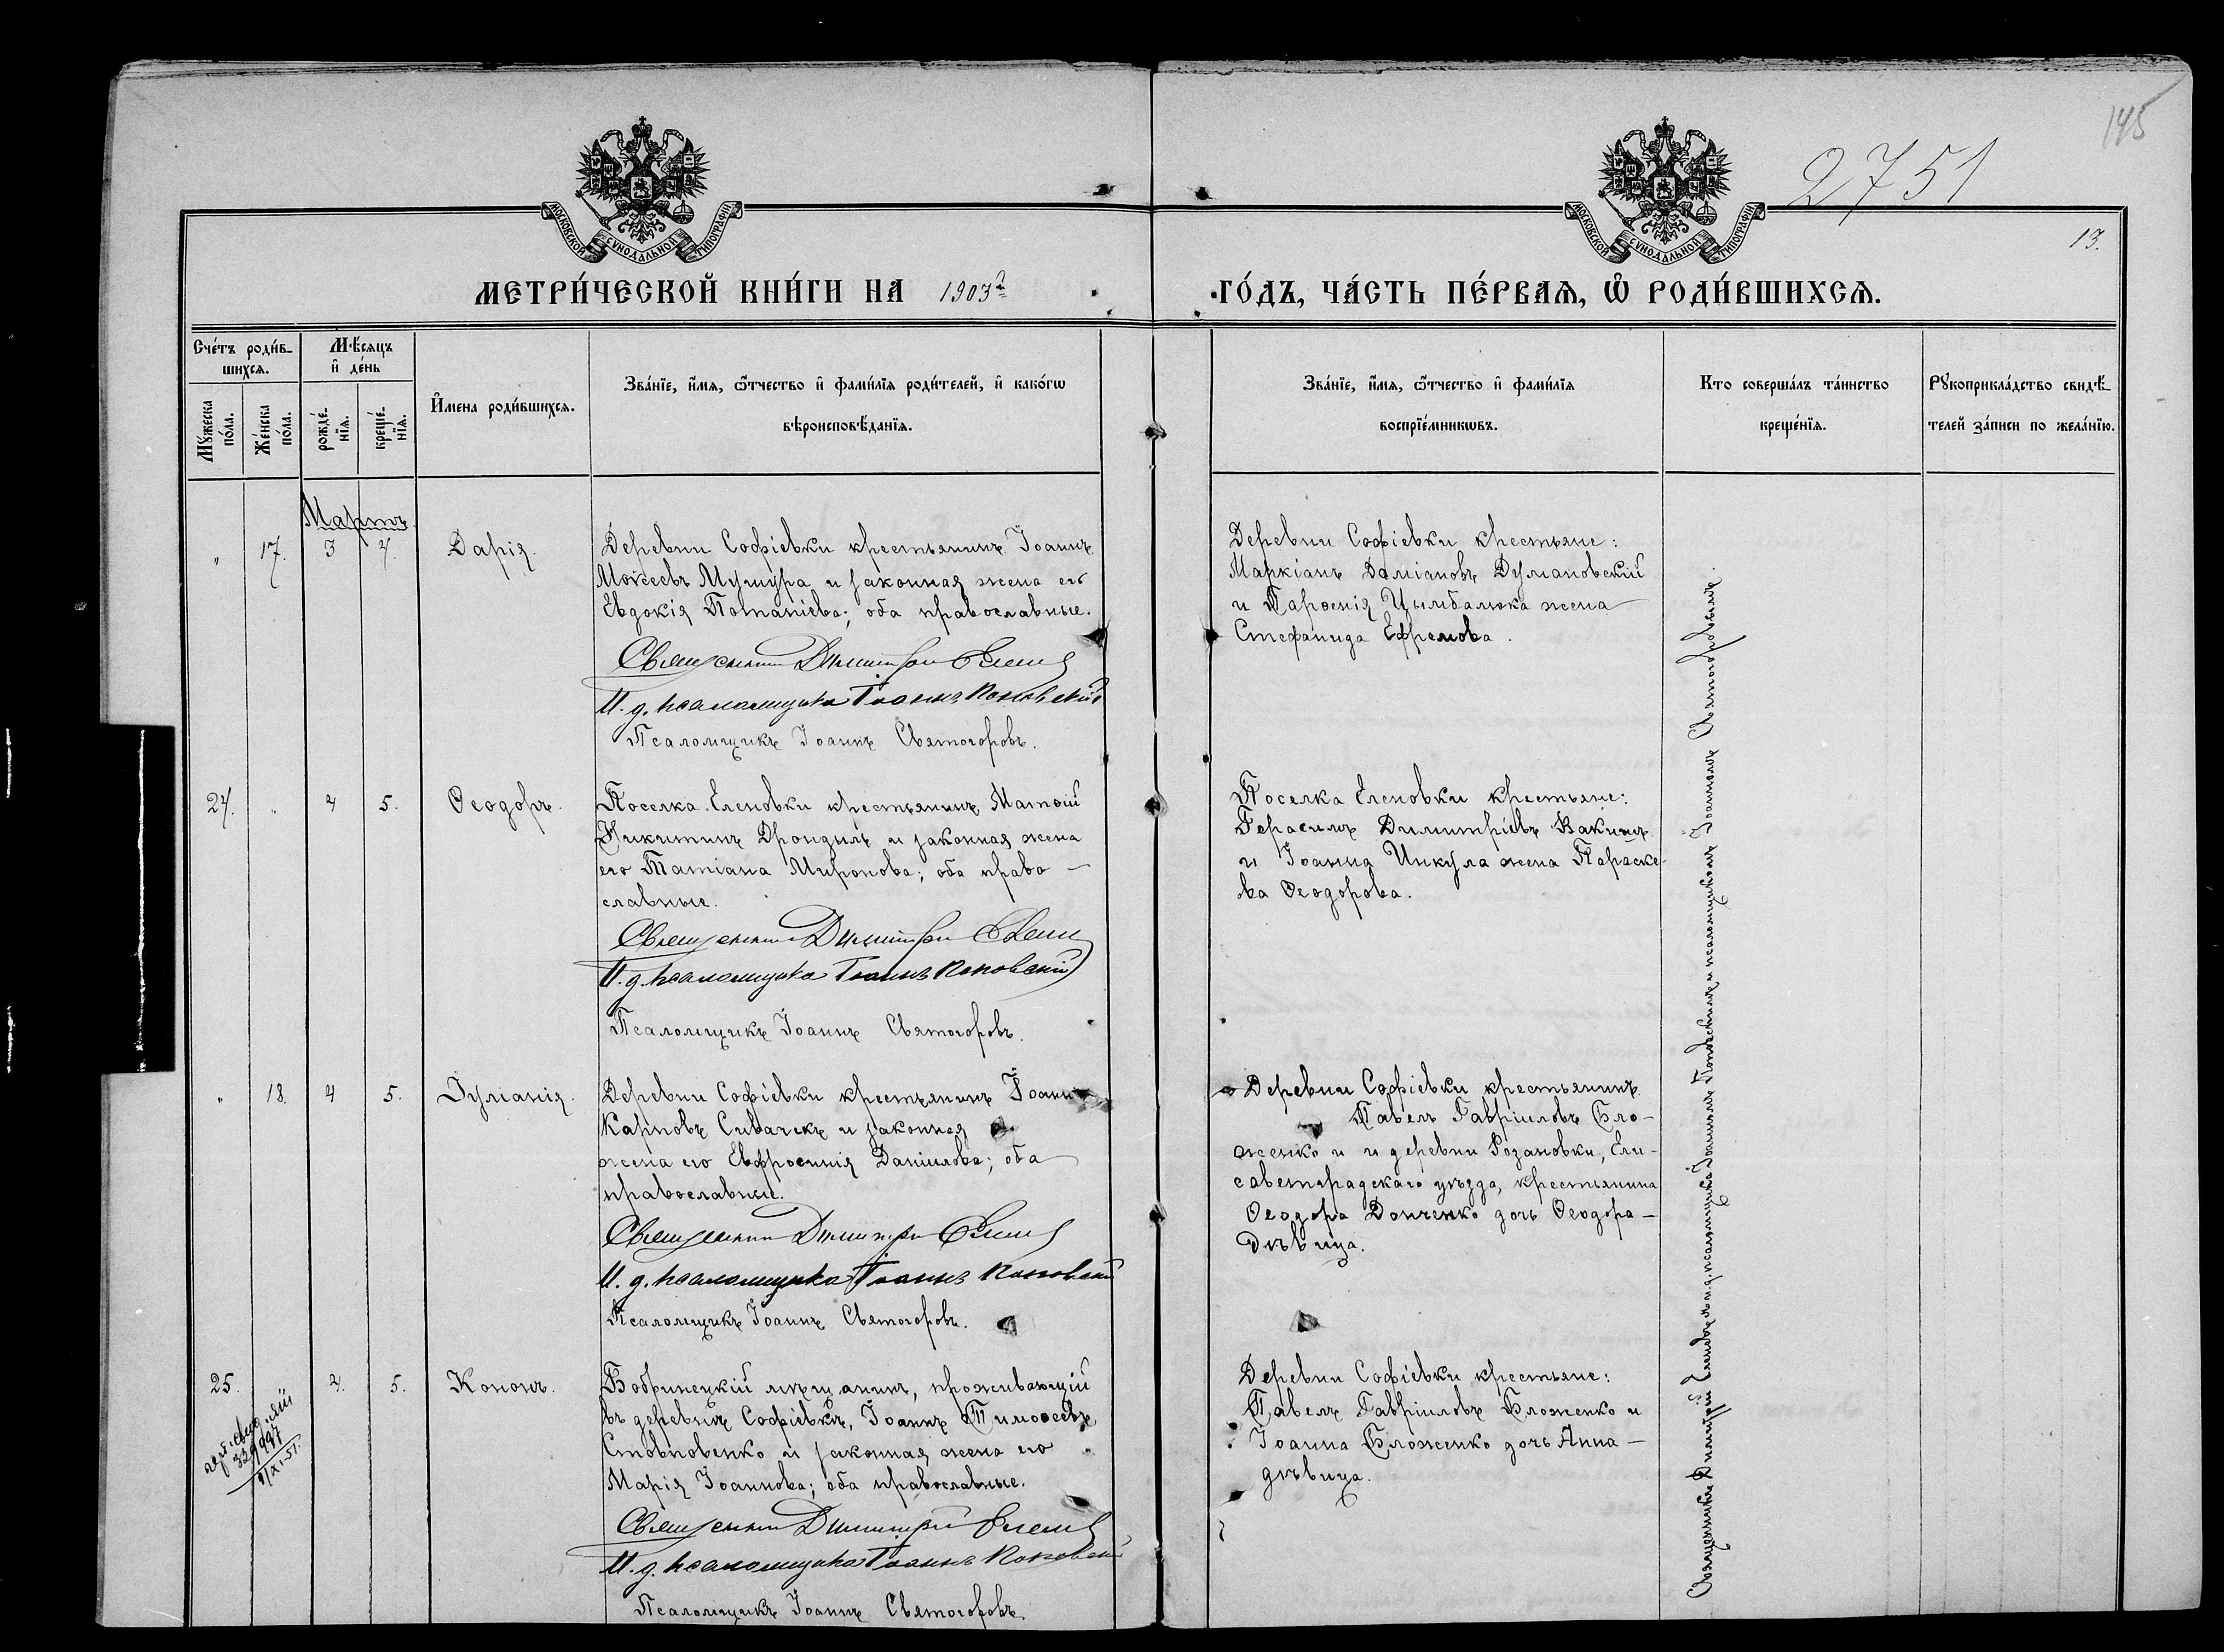 145
2751
13.
МОСКОВСКОЙ СѴНОДАЛЬНОЙ ТИПОГРАФІИ
МОСКОВСКОЙ СѴНОДАЛЬНОЙ ТИПОГРАФІИ
МЕТРИ́ЧЕСКОЙ КНИ́ГИ НА 1903 г.
ГО́ДЪ, ЧА́СТЬ ПЕ́РВАѦ, Ѿ РОДИ́ВШИХСѦ.
Сче́тъ роди́в-
шихсѧ.
Мꙋ́жеска по́ла.
Же́нска по́ла.
Мѣ́сѧцъ и҆ де́нь
рожде́-
нїѧ.
креще́-
нїѧ.
И҆мена роди́вшихсѧ.
Зва́нїе, и҆́мѧ, ѻ҆́тчество и҆ фами́лїѧ роди́телей, и҆ како́гѡ
вѣроисповѣ́данїѧ.
Зва́нїе, и҆́мѧ, ѻ҆́тчество и҆ фами́лїѧ
воспрїе́мникѡвъ.
Кто соверша́лъ та́инство
креще́нїѧ.
Рꙋкоприкла́дство свидѣ́-
телей за́писи по жела́нїю.
Мартъ
" 17. 3 4. Дарія.
Деревни Софіевки крестьянинъ Іоаннъ
Мокеевъ Мушура и законная жена его
Евдокія Потапіева; оба православные.
Священникъ Димитрій
И. д. псаломщика Іоаннъ Поповскій
Псаломщикъ Іоаннъ Святогоровъ.
Деревни Софіевки крестьяне:
Маркіанъ Даміановъ Думановскій
и Парѳенія Цымбалюка жена
Стефанида Ефремова.
24. " 4 5. Ѳеодоръ.
Поселка Еленовки крестьянинъ Матѳій
Никитинъ Дрондиль и законная жена
его Татіана Миронова; оба право-
славные.
Священникъ Димитрій
И. д. псаломщика Іоаннъ Поповскій
Псаломщикъ Іоаннъ Святогоровъ.
Поселка Еленовки крестьяне:
Герасимъ Димитріевъ Вакинъ
и Іоанна Цикула жена Параске-
ва Ѳеодорова.
" 18. 4 5. Іуліанія.
Деревни Софіевки крестьянинъ Іоаннъ
Карповъ Сивачекъ и законная
жена его Евфросинія Даніилова; оба
православные.
Священникъ Димитрій
И. д. псаломщика Іоаннъ Поповскій
Псаломщикъ Іоаннъ Святогоровъ.
Деревни Софіевки крестьянинъ
Павелъ Гавріиловъ Бло-
женко и и деревни Розановки, Ели-
саветградскаго уѣзда, крестьянина
Ѳеодора Донченко дочь Ѳеодора —
дѣвица.
25. 4. 5. Кононъ.
Бобринецкій мѣщанинъ, проживающій
въ деревнѣ Софіевкѣ, Іоаннъ Тимоѳеевъ
Стовповенко и законная жена его
Марія Іоаннова; оба православные.
Священникъ Димитрій
И. д. псаломщика Іоаннъ Поповскій
Псаломщикъ Іоаннъ Святогоровъ.
Деревни Софіевки крестьяне:
Павелъ Гавріиловъ Бложенко и
Іоанна Бложенко дочь Анна —
дѣвица.
Священникъ Димитрій и. д. псаломщика Іоаннъ Поповскій и псаломщикомъ Іоанномъ Святогоровымъ.